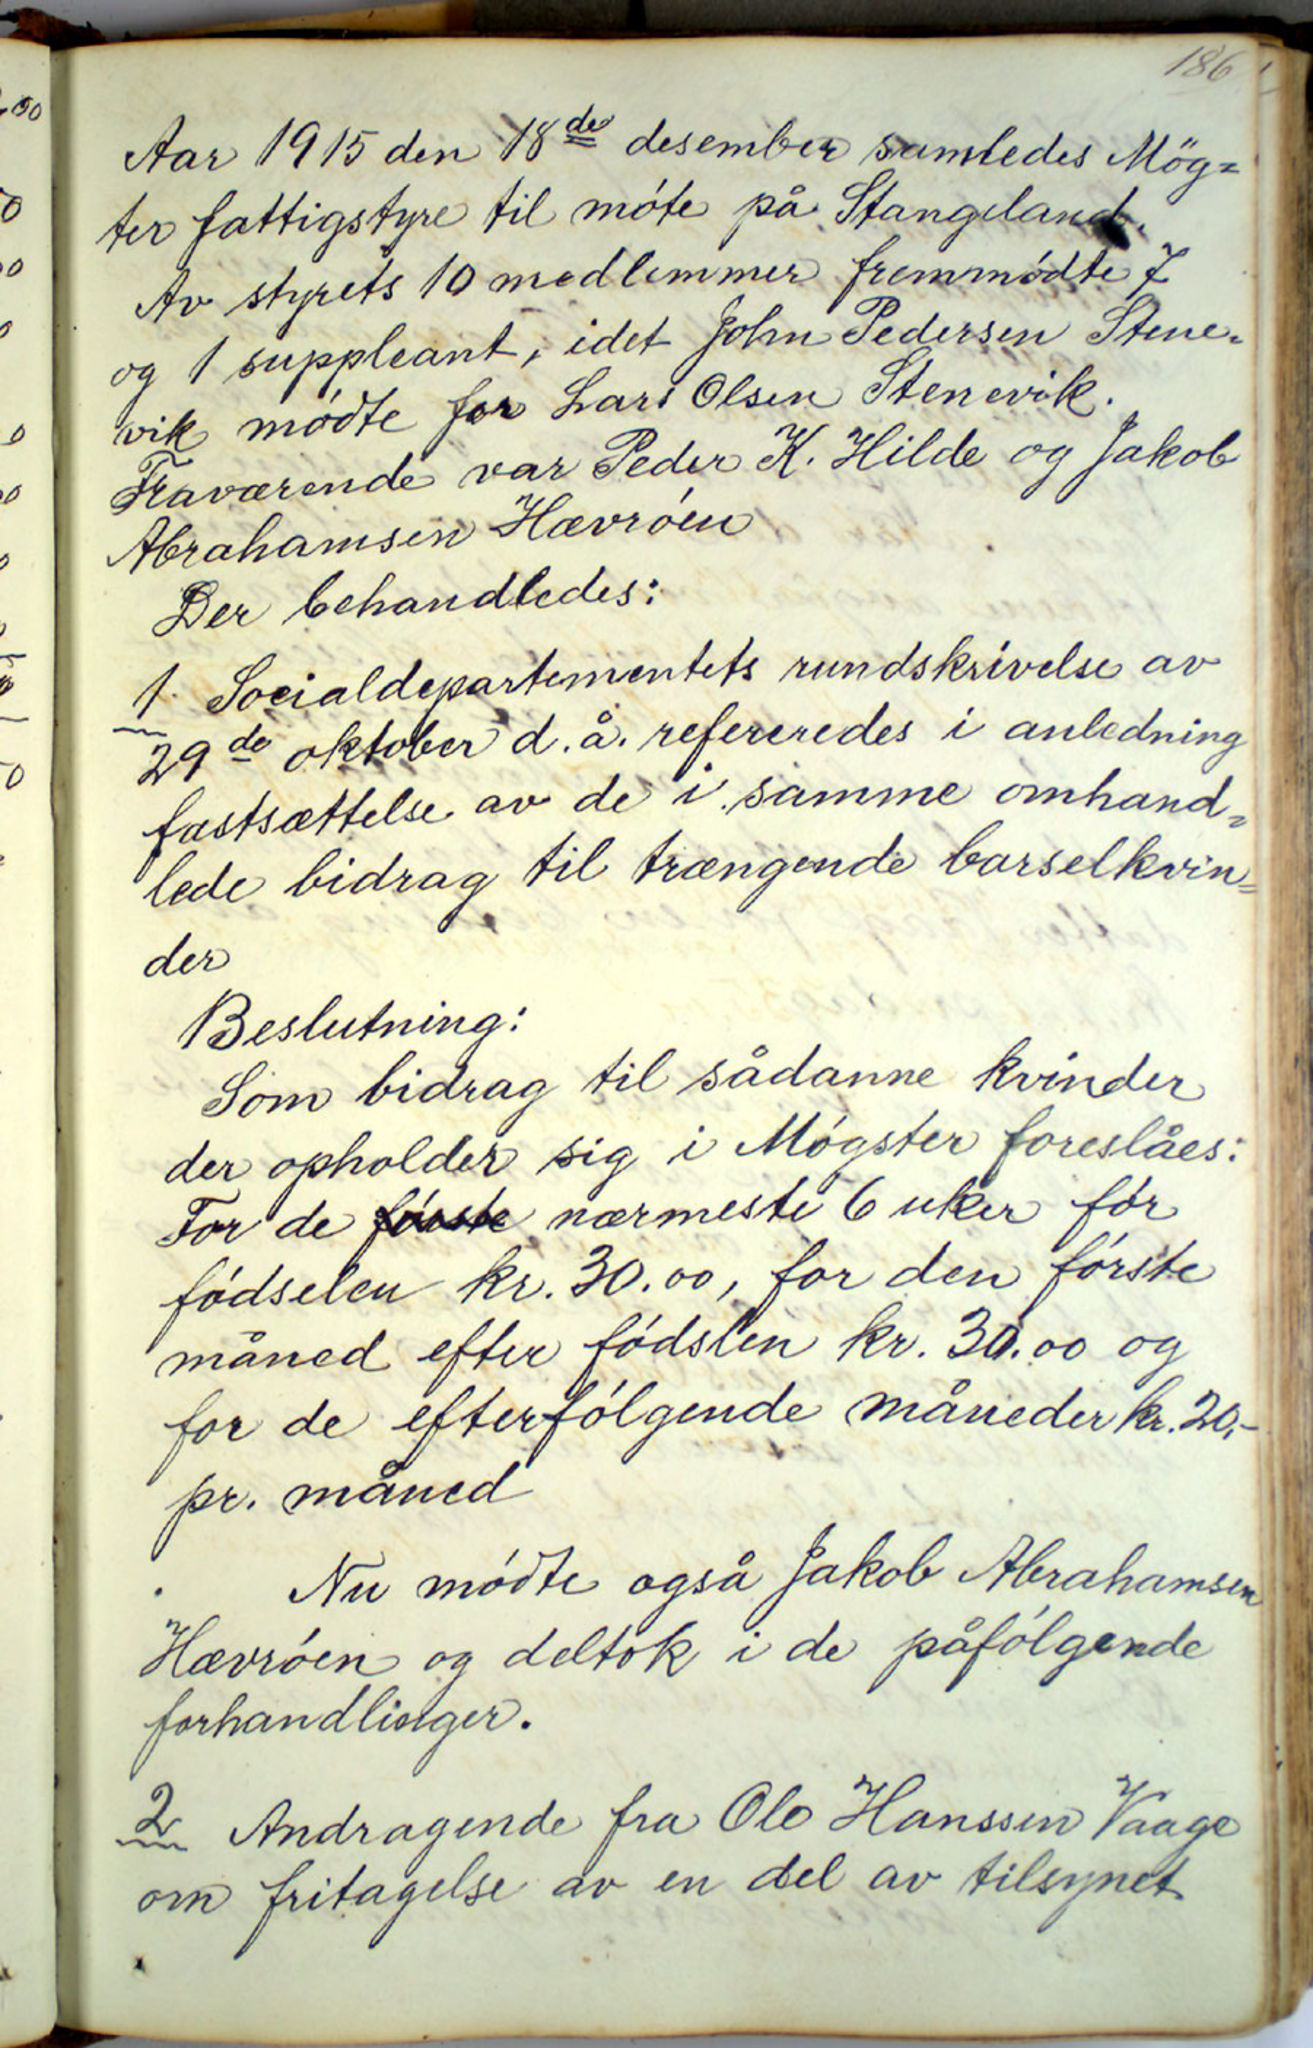 186
Aar 1915 den 18de desember samledes Mög=
ter fattigstyre til móte på Stangeland.
Av styrets 10 medlemmer fremmódte 7
og 1 suppleant, idet John Pedersen Stene-
vik módte for Lars Olsen Stenevik.
Fraværende var Peder K. Hilde og Jakob
Abrahamsen Hævróen
Der behandledes:
1. Socialdepartementets rundskrivelse av
29de oktober d.å. refereredes i anledning
fastsættelse av de i samme omhand=
lede bidrag til trængende barselkvin=
der
Beslutning:
Som bidrag til sådanne kvinder
der opholder sig i Mógster foreslåes:
For de fórste nærmeste 6 uker fór
fódselen kr. 30.00, for den fórste
måned efter fódslen kr. 30.00 og
for de efterfólgende måneder kr. 20,-
pr. måned
Nu módte også Jakob Abrahamsen
Hævróen og deltok i de påfólgende
forhandlinger.
2 Andragende fra Ole Hanssen Vaage
om fritagelse av en del av tilsynet